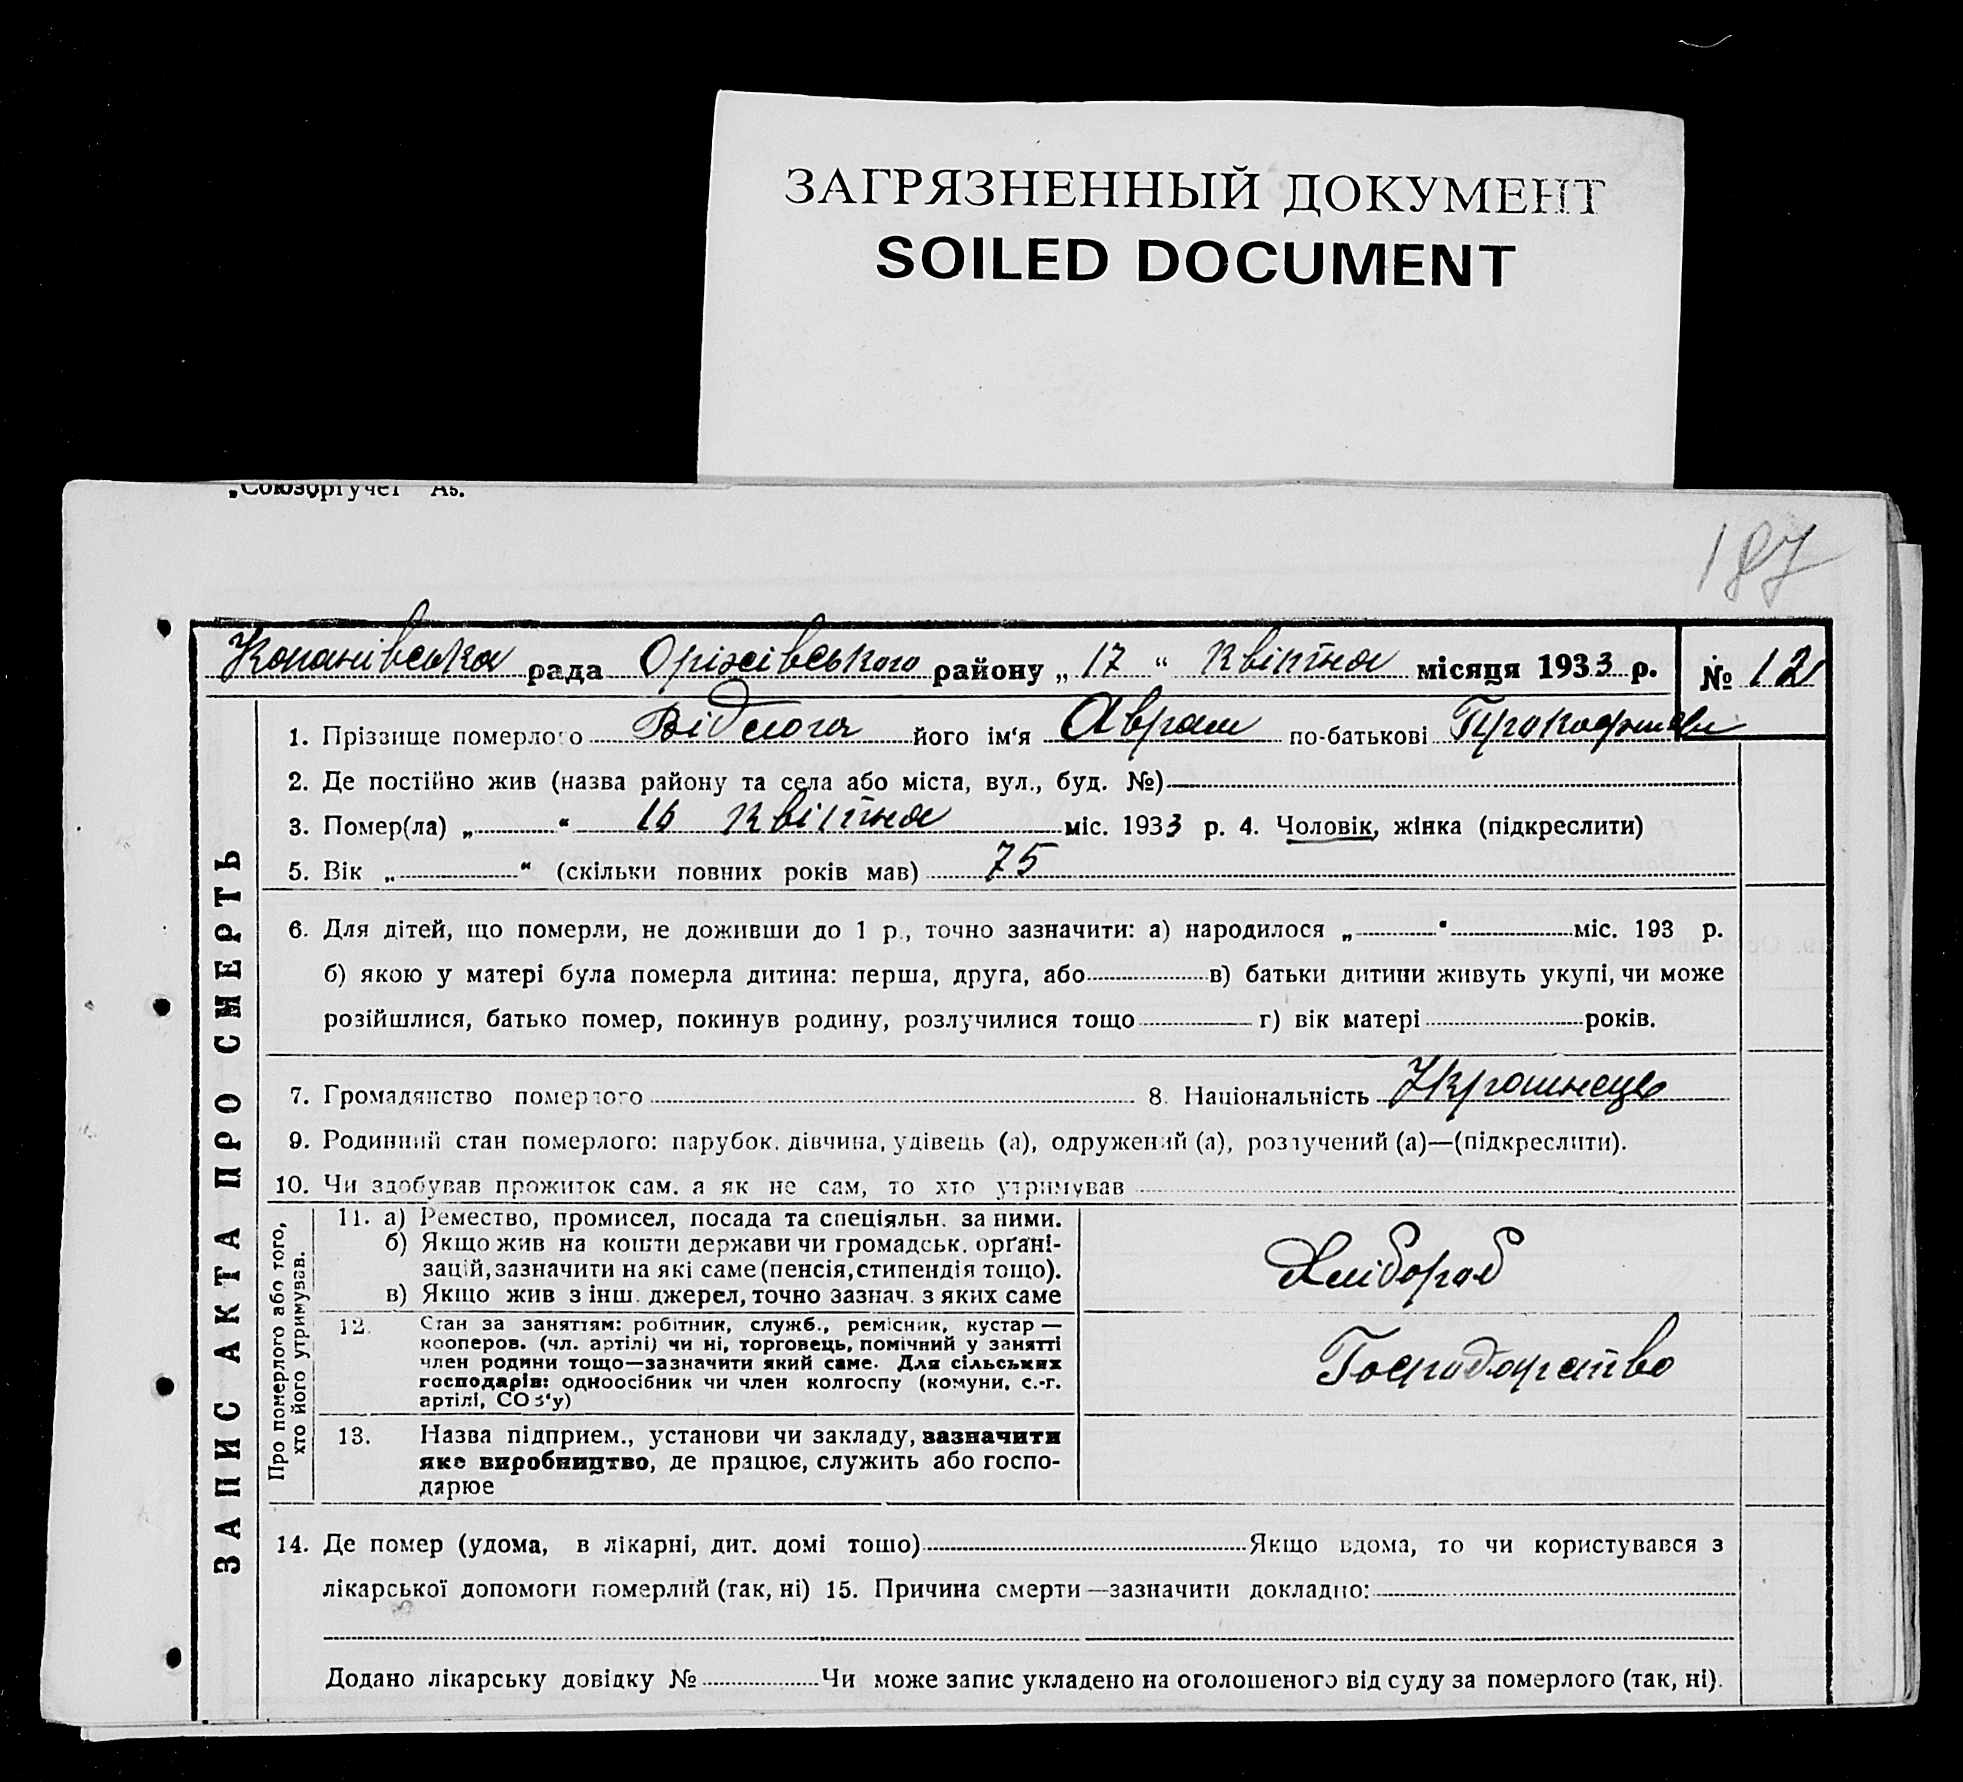 ЗАГРЯЗНЕННЫЙ ДОКУМЕНТ
SOILED DOCUMENT
„Союзоргучет"
187
Копанівська рада Оріхівського району „17" квітня місяця 1933 р. № 12
ЗАПИС АКТА ПРО СМЕРТЬ
1. Прізвище померлого Відлога його ім'я Аврам по-батькові
2. Де постійно жив (назва району та села або міста, вул., буд. №)
3. Помер(ла) „ " 16 квітня міс. 1933 р. 4. Чоловік, жінка (підкреслити)
5. Вік „ " (скільки повних років мав) 75
6. Для дітей, що померли, не доживши до 1 р., точно зазначити: а) народилося „ " міс. 193 р.
б) якою у матері була померла дитина: перша, друга, або в) батьки дитини живуть укупі, чи може
розійшлися, батько помер, покинув родину, розлучилися тощо г) вік матері років.
7. Громадянство померлого 8. Національність Українець
9. Родинний стан померлого: парубок, дівчина, удівець (а), одружений (а), розлучений (а)—(підкреслити).
10. Чи здобував прожиток сам, а як не сам, то хто утримував
Про померлого або того,
хто його утримував.
11. а) Ремество, промисел, посада та спеціяльн. за ними.
б) Якщо жив на кошти держави чи громадськ. орґані-
зацій, зазначити на які саме (пенсія, стипендія тощо).
в) Якщо жив з інш. джерел, точно зазнач. з яких саме
Хлібороб
12. Стан за заняттям: робітник, служб., ремісник, кустар —
кооперов. (чл. артілі) чи ні, торговець, помічний у занятті
член родини тощо—зазначити який саме. Для сільських
господарів: одноосібник чи член колгоспу (комуни, с.-г.
артілі, СОЗ'у)
Господарство
13. Назва підприєм., установи чи закладу, зазначити
яке виробництво, де працює, служить або госпо-
дарює
14. Де помер (удома, в лікарні, дит. домі тощо) Якщо вдома, то чи користувався з
лікарської допомоги померлий (так, ні) 15. Причина смерти—зазначити докладно:
Додано лікарську довідку № Чи може запис укладено на оголошеного від суду за померлого (так, ні).